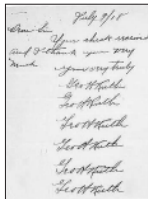 July 9/08
Dear Sir
Your check received
and I thank you very
much
Yours very truly
Geo H Ruth
Geo H Ruth
Geo H Ruth
Geo H Ruth
Geo H Ruth
Geo H Ruth